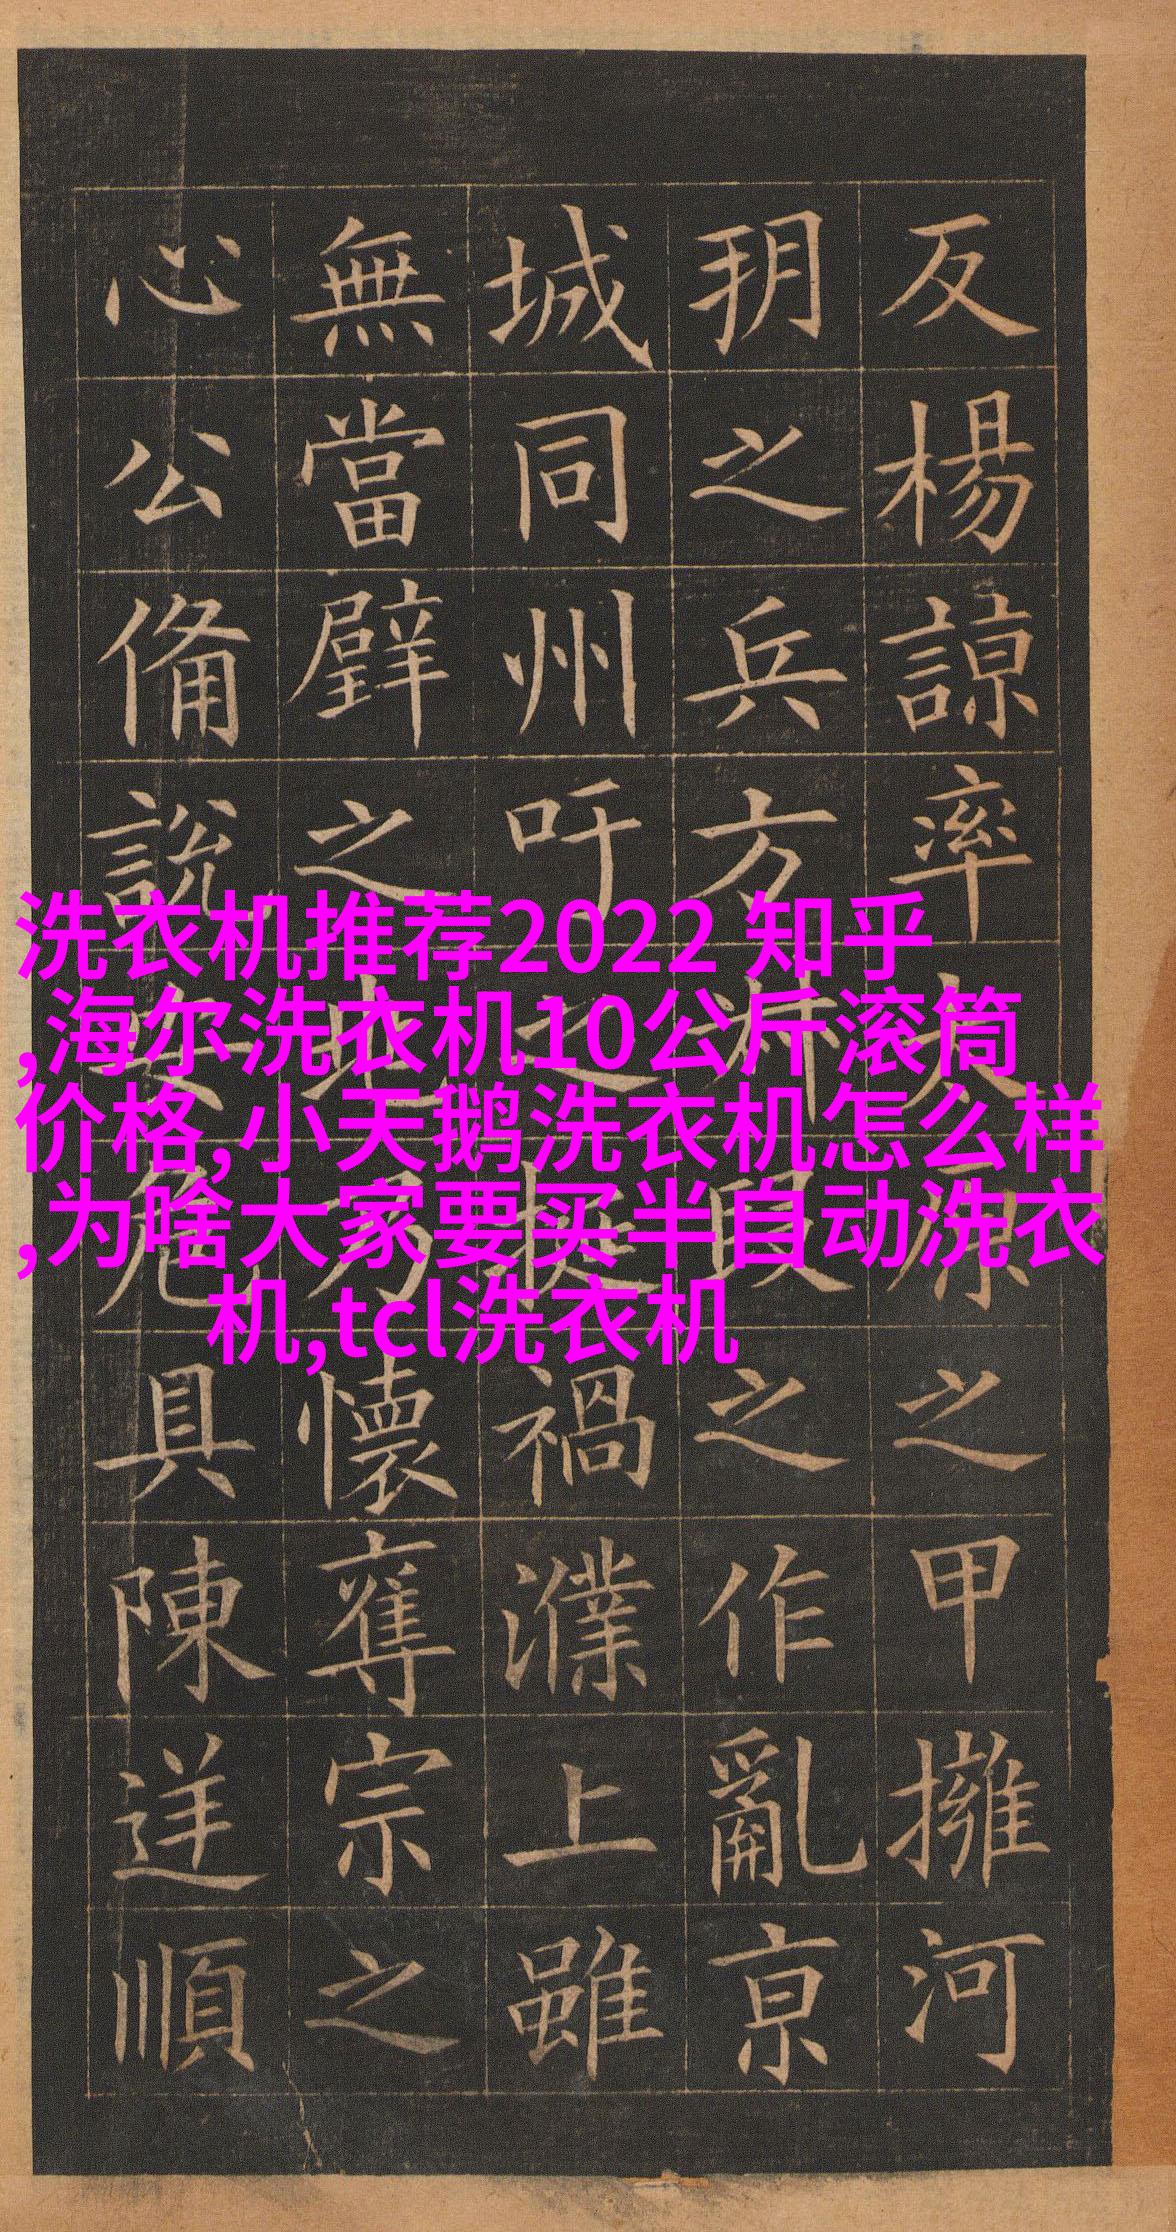 反楊諒率太原之甲擁河
朔之兵方叔段之作亂京
城同州吁之挺禍濮上雖
無當璧之地乃懷奪宗之
心公備說安危具陳逆順
洗衣机推荐2022 知乎
,海尔洗衣机10公斤滚筒
价格,小天鹅洗衣机怎么样
,为啥大家要买半自动洗衣
机,tcl洗衣机